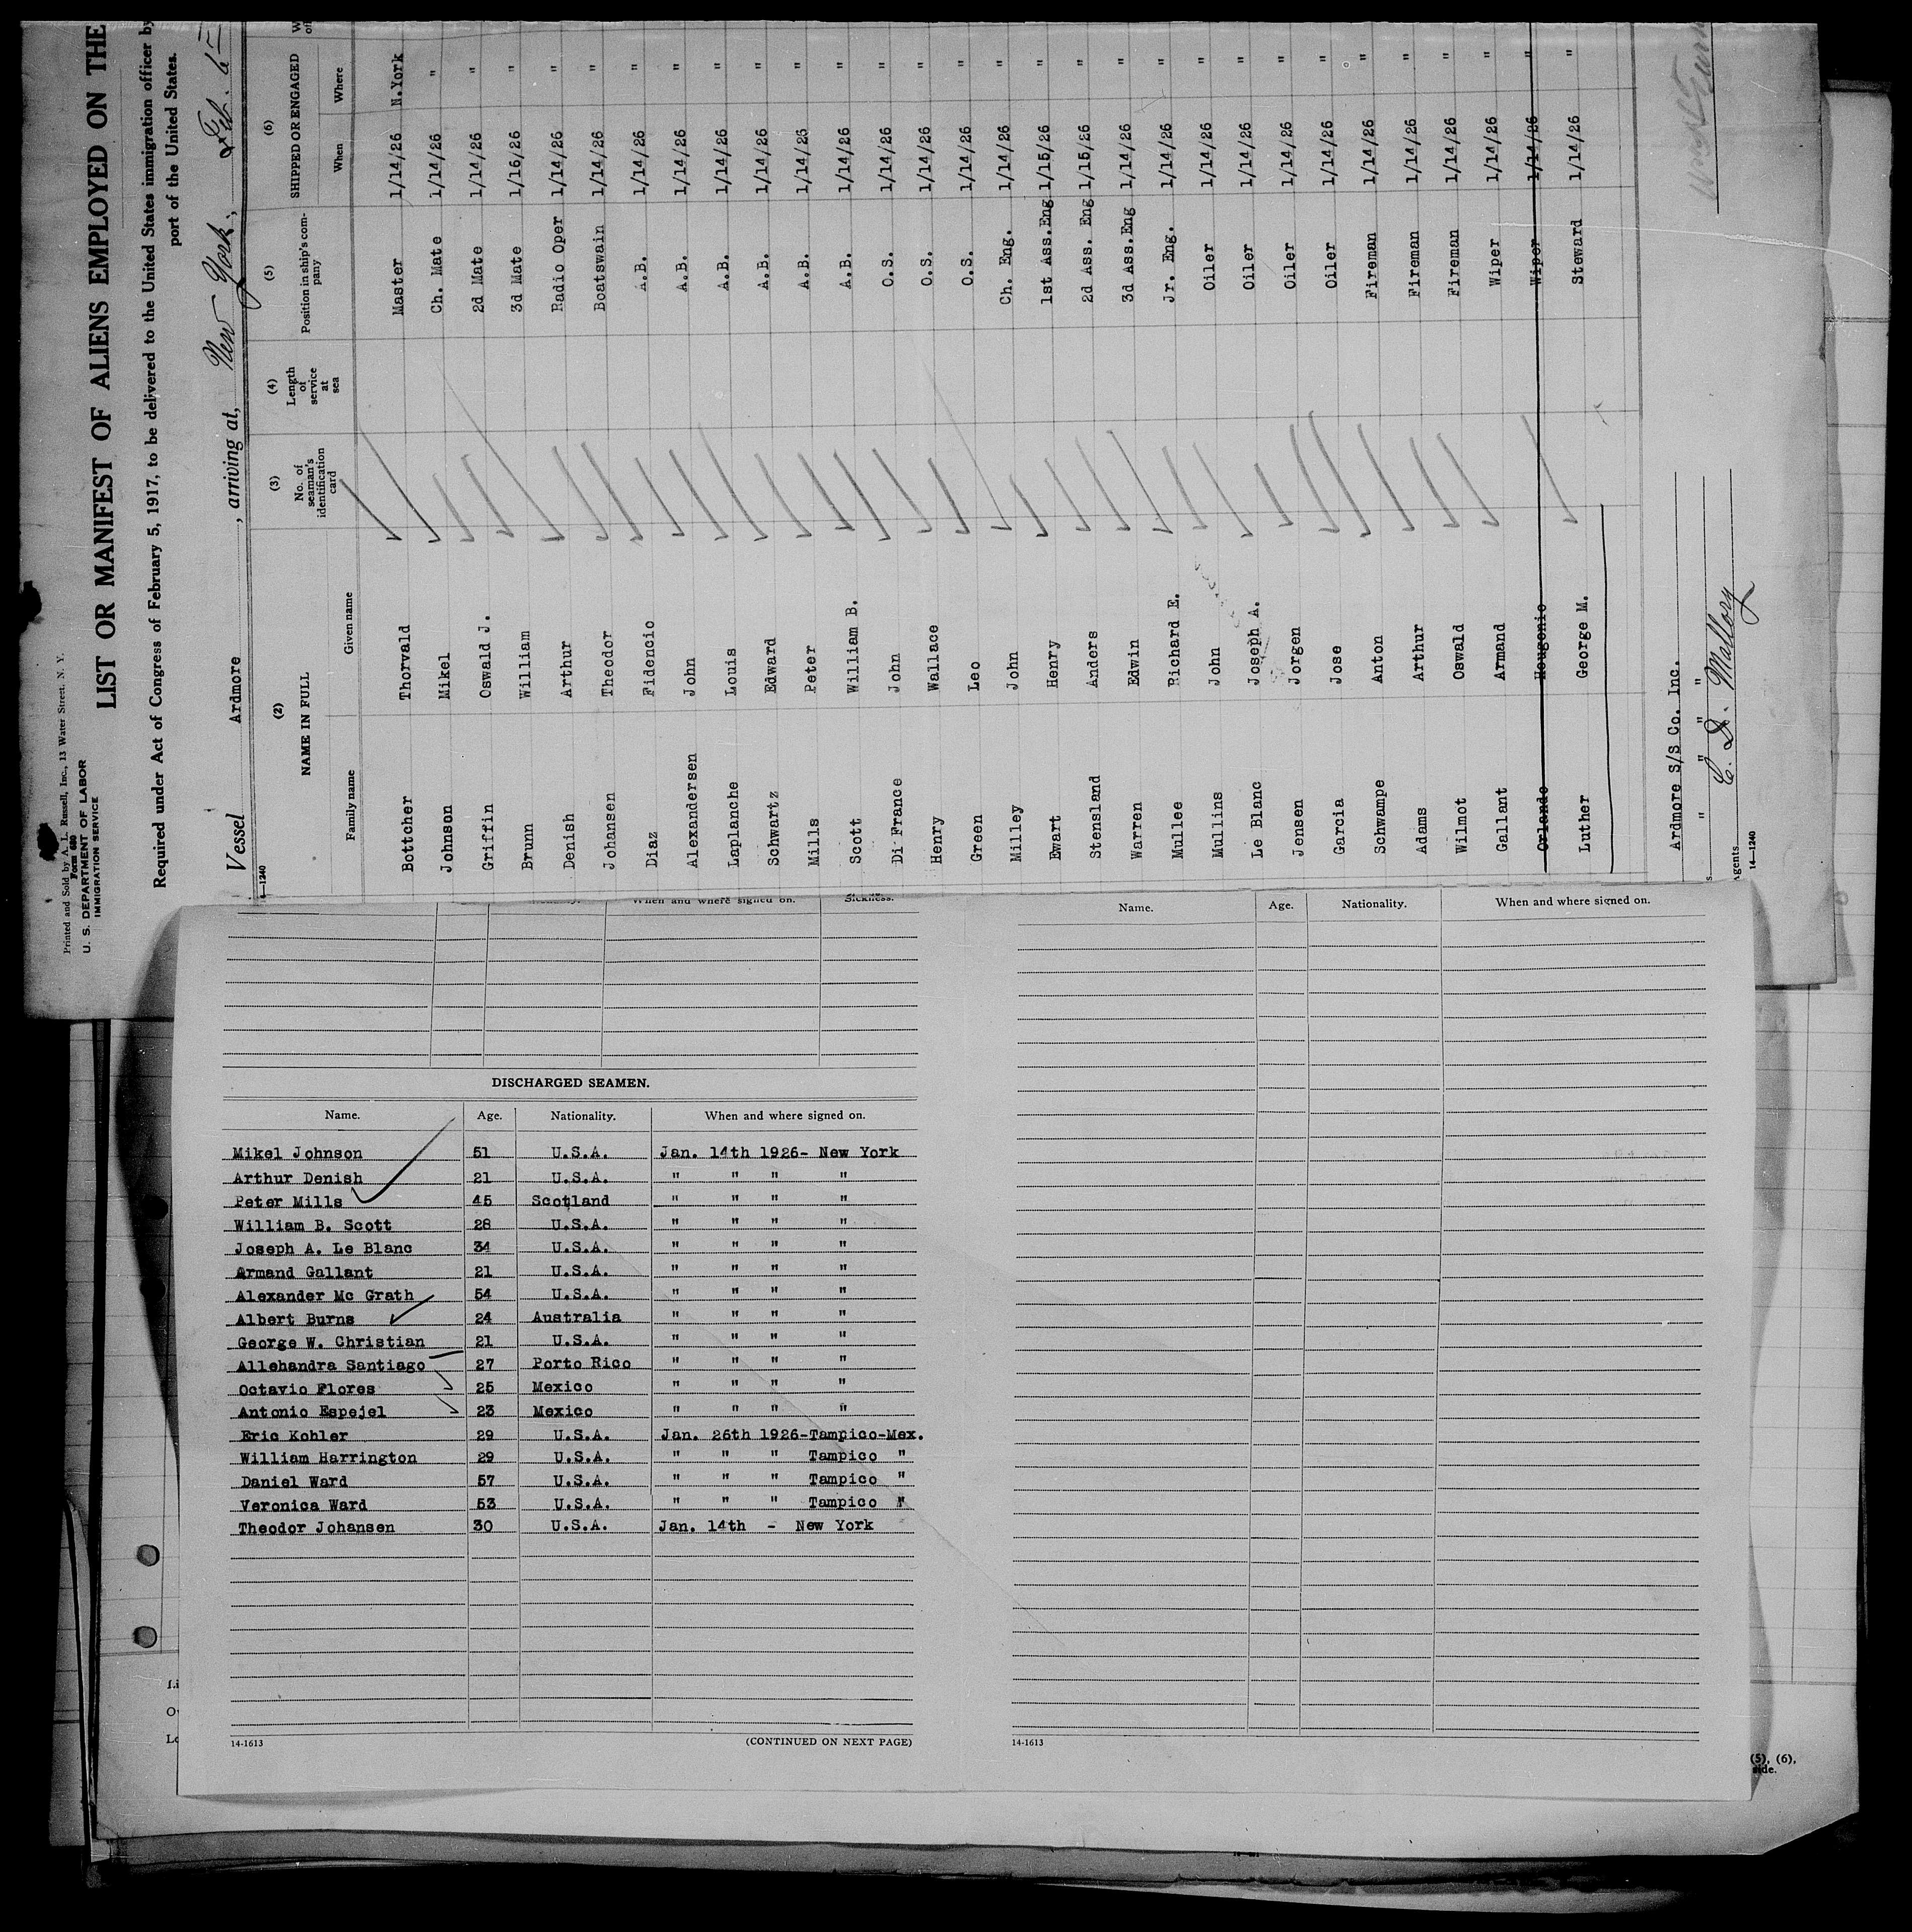 Printed and Sold by A. L. Russell, Inc., 13 Water Street, N. Y.
Form 680
U. S. DEPARTMENT OF LABOR
IMMIGRATION SERVICE
LIST OR MANIFEST OF ALIENS EMPLOYED ON THE
Required under Act of Congress of February 5, 1917, to be delivered to the United States immigration officer by
port of the United States.
Vessel Ardmore, arriving at, New York, Feb.
14—1240
(2) (3) (4) (5) (6)
NAME IN FULL No. of seaman's identification card Length of service at sea Position in ship's company SHIPPED OR ENGAGED
Family name Given name When Where
Bottcher Thorvald Master 1/14/26 N.York
Johnson Mikel Ch. Mate 1/14/26 "
Griffin Oswald J. 2d Mate 1/14/26 "
Brunn William 3d Mate 1/16/26 "
Denish Arthur Radio Oper 1/14/26 "
Johansen Theodor Boatswain 1/14/26 "
Diaz Fidencio A.B. 1/14/26 "
Alexandersen John A.B. 1/14/26 "
Laplanche Louis A.B. 1/14/26 "
Schwartz Edward A.B. 1/14/26 "
Mills Peter A.B. 1/14/26 "
Scott William B. A.B. 1/14/26 "
Di France John O.S. 1/14/26 "
Henry Wallace O.S. 1/14/26 "
Green Leo O.S. 1/14/26 "
Milley John Ch. Eng. 1/14/26 "
Ewart Henry 1st Ass.Eng 1/15/26 "
Stensland Anders 2d Ass. Eng 1/15/26 "
Warren Edwin 3d Ass.Eng 1/14/26 "
Mullee Richard E. Jr. Eng. 1/14/26 "
Mullins John Oiler 1/14/26 "
Le Blanc Joseph A. Oiler 1/14/26 "
Jensen Jorgen Oiler 1/14/26 "
Garcia Jose Oiler 1/14/26 "
Schwampe Anton Fireman 1/14/26 "
Adams Arthur Fireman 1/14/26 "
Wilmot Oswald Fireman 1/14/26 "
Gallant Armand Wiper 1/14/26 "
Orlando Wiper 1/14/26 "
Luther George M. Steward 1/14/26 "
Ardmore S/S Co. Inc.
" " " "
C. D. Mallory
Agents
14—1240
When and where signed on. Sickness.
DISCHARGED SEAMEN.
Name. Age. Nationality. When and where signed on.
Mikel Johnson 51 U.S.A. Jan. 14th 1926- New York
Arthur Denish 21 U.S.A. " " " "
Peter Mills 45 Scotland " " " "
William B. Scott 28 U.S.A. " " " "
Joseph A. Le Blanc 34 U.S.A. " " " "
Armand Gallant 21 U.S.A. " " " "
Alexander Mc Grath 54 U.S.A. " " " "
Albert Burns 24 Australia " " " "
George W. Christian 21 U.S.A. " " " "
Allehandra Santiago 27 Porto Rico " " " "
Octavio Flores 25 Mexico " " " "
Antonio Espejel 23 Mexico " " " "
Eric Kohler 29 U.S.A. Jan. 26th 1926-Tampico-Mex.
William Harrington 29 U.S.A. " " " Tampico "
Daniel Ward 57 U.S.A. " " " Tampico "
Veronica Ward 53 U.S.A. " " " Tampico "
Theodor Johansen 30 U.S.A. Jan. 14th - New York
14-1613 (CONTINUED ON NEXT PAGE)
Name. Age. Nationality. When and where signed on.
14-1613
(5), (6),
side.